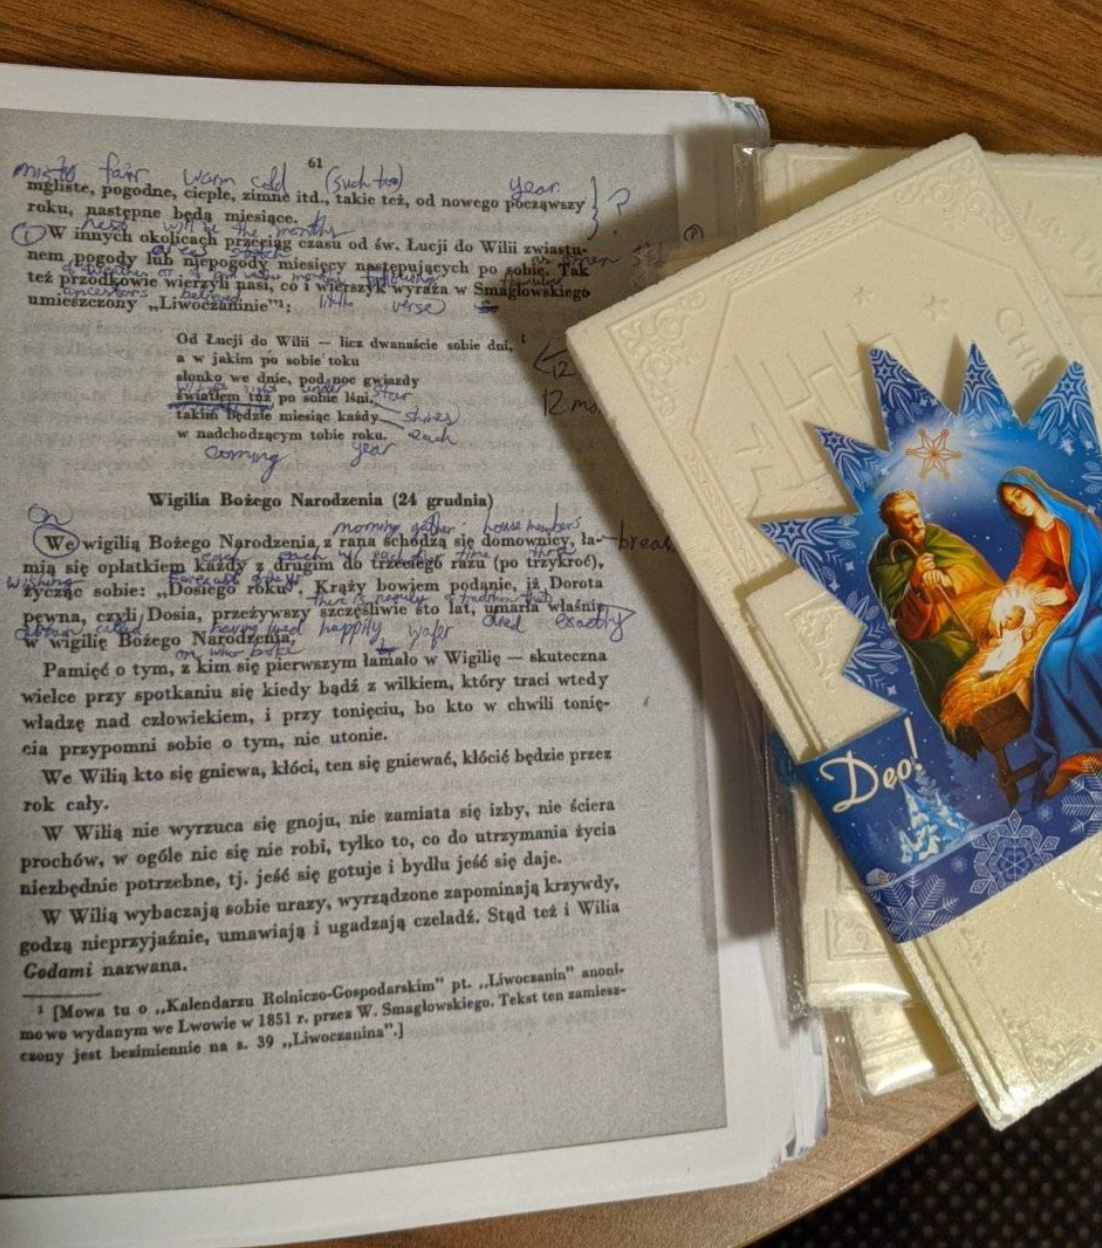 61
misty fair warm cold (such too) year
mgliste, pogodne, ciepłe, zimne itd., takie też, od nowego począwszy
roku, następne będą miesiące. } ?
next will be the months
① W innych okolicach przeciąg czasu od św. Łucji do Wilii zwiastu-
areas omen
nem pogody lub niepogody miesięcy następujących po sobie. Tak
of weather or of bad weather months following
też przodkowie wierzyli nasi, co i wierszyk wyraża w Smagłowskiego
ancestors believed little verse
umieszczony „Liwoczaninie”¹:
Od Łucji do Wilii — licz dwanaście sobie dni,
a w jakim po sobie toku
słonko we dnie, pod noc gwiazdy
under star
światłem toż po sobie lśni,
takim będzie miesiąc każdy shines
w nadchodzącym tobie roku. each
coming year
12
12 mo.
Wigilia Bożego Narodzenia (24 grudnia)
On morning gather house members
We wigilię Bożego Narodzenia z rana schodzą się domownicy, ła- break
each each w/ each other time three
mią się opłatkiem każdy z drugim do trzeciego razu (po trzykroć),
wishing
życząc sobie: „Dosiego roku”. Krąży bowiem podanie, iż Dorota
there is tradition that
pewna, czyli Dosia, przeżywszy szczęśliwie sto lat, umarła właśnie
certain called having lived happily wafer died exactly
w wigilię Bożego Narodzenia.
on who broke
Pamięć o tym, z kim się pierwszym łamało w Wigilię — skuteczna
wielce przy spotkaniu się kiedy bądź z wilkiem, który traci wtedy
władzę nad człowiekiem, i przy tonięciu, bo kto w chwili tonię-
cia przypomni sobie o tym, nie utonie.
We Wilią kto się gniewa, kłóci, ten się gniewać, kłócić będzie przez
rok cały.
W Wilią nie wyrzuca się gnoju, nie zamiata się izby, nie ściera
prochów, w ogóle nic się nie robi, tylko to, co do utrzymania życia
niezbędnie potrzebne, tj. jeść się gotuje i bydłu jeść się daje.
W Wilią wybaczają sobie urazy, wyrządzone zapominają krzywdy,
godzą nieprzyjaźnie, umawiają i ugadzają czeladź. Stąd też i Wilia
Godami nazwana.
¹ [Mowa tu o „Kalendarzu Rolniczo-Gospodarskim” pt. „Liwoczanin” anoni-
mowo wydanym we Lwowie w 1851 r. przez W. Smagłowskiego. Tekst ten zamiesz-
czony jest bezimiennie na s. 39 „Liwoczanina”.]
CHR
Deo!